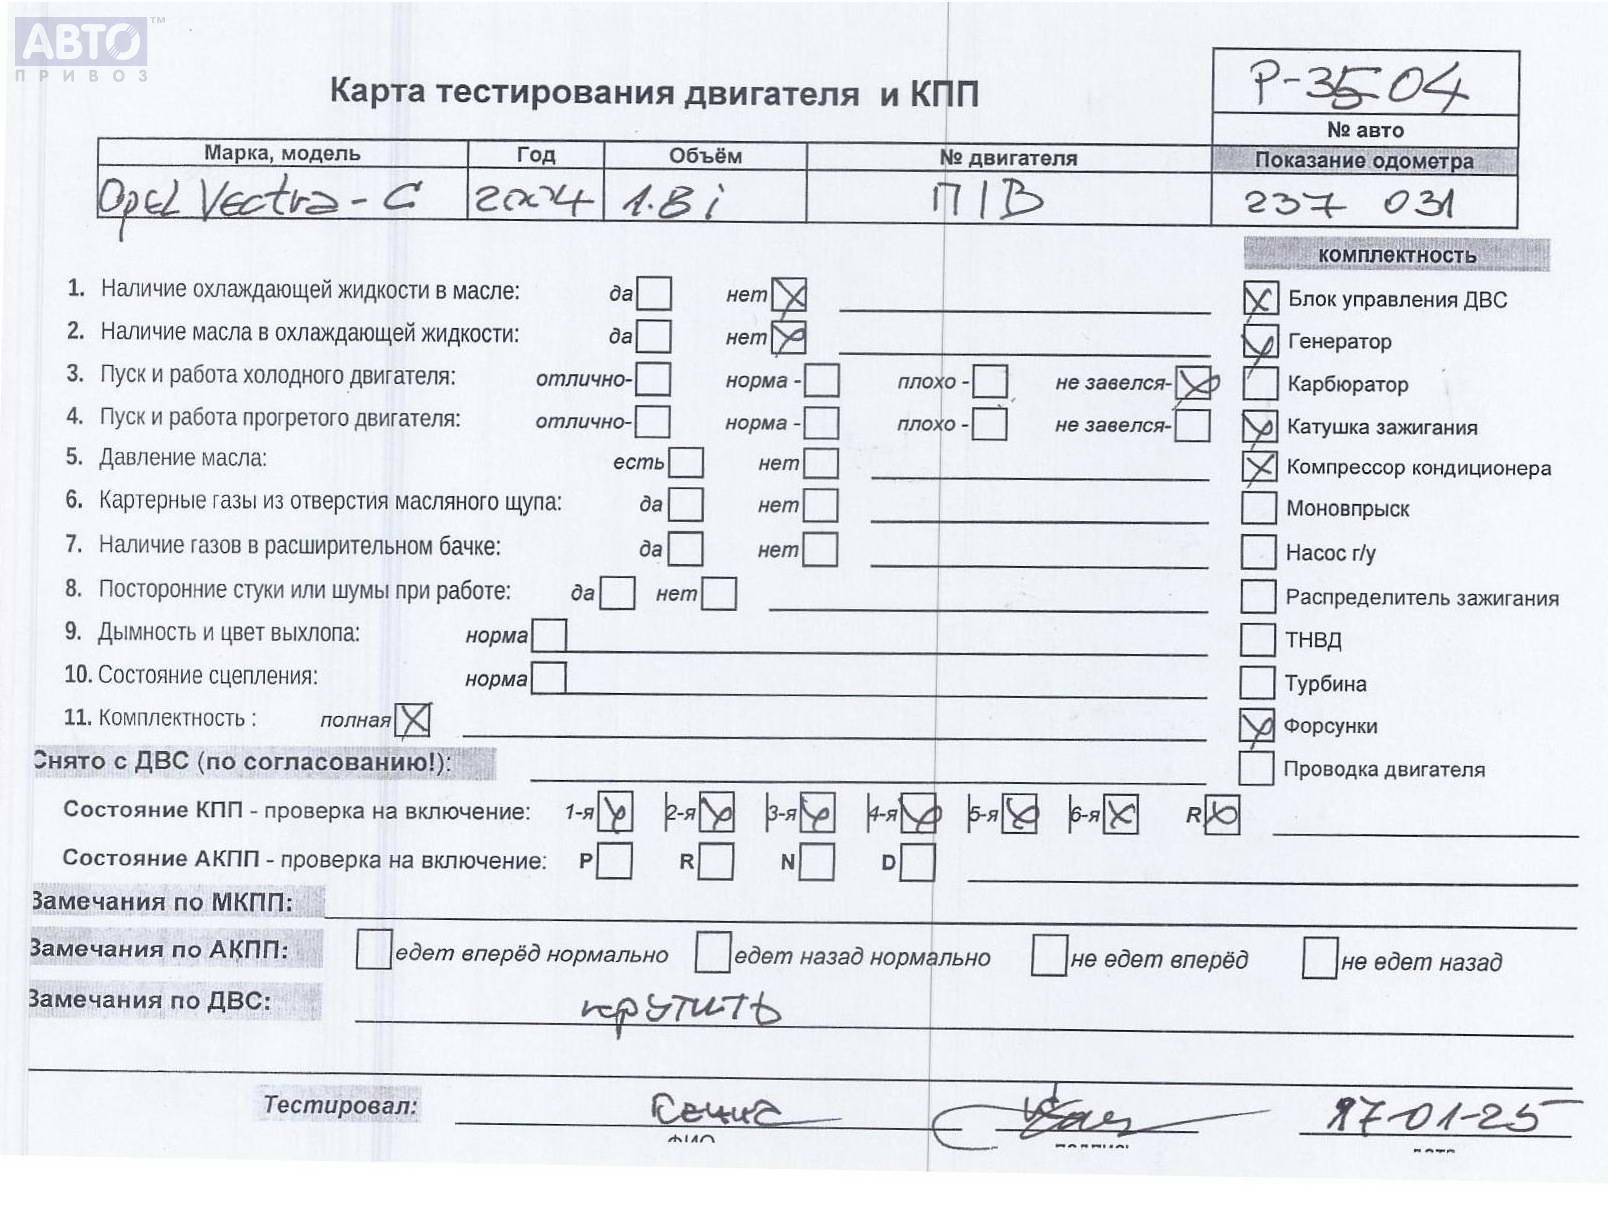 АВТО ™
ПРИВОЗ
Карта тестирования двигателя и КПП
P-3504
№ авто
Марка, модель Год Объём № двигателя Показание одометра
Opel Vectra-C 2004 1.8i П/В 237 031
комплектность
1. Наличие охлаждающей жидкости в масле: да нет
Блок управления ДВС
2. Наличие масла в охлаждающей жидкости: да нет
Генератор
3. Пуск и работа холодного двигателя: отлично- норма - плохо - не завелся-
Карбюратор
4. Пуск и работа прогретого двигателя: отлично- норма - плохо - не завелся-
Катушка зажигания
5. Давление масла: есть нет
Компрессор кондиционера
6. Картерные газы из отверстия масляного щупа: да нет
Моновпрыск
7. Наличие газов в расширительном бачке: да нет
Насос г/у
8. Посторонние стуки или шумы при работе: да нет
Распределитель зажигания
9. Дымность и цвет выхлопа: норма
ТНВД
10. Состояние сцепления: норма
Турбина
11. Комплектность : полная
Форсунки
Снято с ДВС (по согласованию!):
Проводка двигателя
Состояние КПП - проверка на включение: 1-я 2-я 3-я 4-я 5-я 6-я R
Состояние АКПП - проверка на включение: P R N D
Замечания по МКПП:
Замечания по АКПП: едет вперёд нормально едет назад нормально не едет вперёд не едет назад
Замечания по ДВС: крутить
Тестировал: 17-01-25
ФИО подпись дата